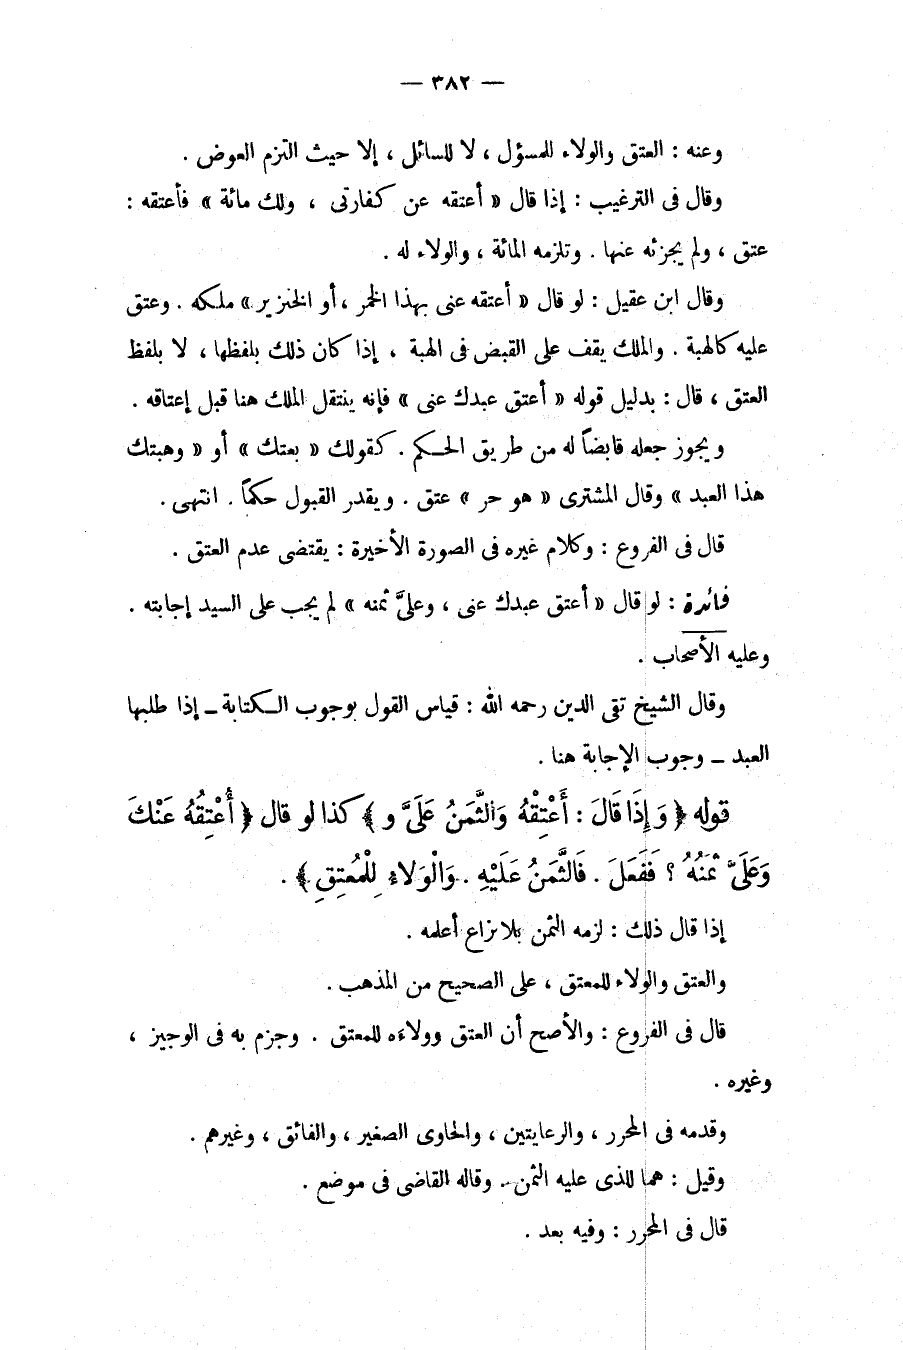 — ٣٨٢ —
وعنه : العتق والولاء للمسؤل ، لا للسائل ، إلا حيث التزم العوض .
وقال فى الترغيب : إذا قال « أعتقه عن كفارتى ، ولك مائة » فأعتقه :
عتق ، ولم يجزئه عنها . وتلزمه المائة ، والولاء له .
وقال ابن عقيل : لو قال « أعتقه عنى بهذا الخمر ، أو الخنزير » ملكه . وعتق
عليه كالهبة . والملك يقف على القبض فى الهبة ، إذا كان ذلك بلفظها ، لا بلفظ
العتق ، قال : بدليل قوله « أعتق عبدك عنى » فإنه ينتقل الملك هنا قبل إعتاقه .
ويجوز جعله قابضاً له من طريق الحكم . كقولك « بعتك » أو « وهبتك
هذا العبد » وقال المشترى « هو حر » عتق . ويقدر القبول حكماً . انتهى .
قال فى الفروع : وكلام غيره فى الصورة الأخيرة : يقتضى عدم العتق .
فائدة : لو قال « أعتق عبدك عنى ، وعلىَّ ثمنه » لم يجب على السيد إجابته .
وعليه الأصحاب .
وقال الشيخ تقى الدين رحمه الله : قياس القول بوجوب الكتابة ــ إذا طلبها
العبد ــ وجوب الإجابة هنا .
قوله ﴿ وَإِذَا قَالَ : أَعْتِقْهُ وَالثَّمَنُ عَلَىَّ و ﴾ كذا لو قال ﴿ أُعْتِقُهُ عَنْكَ
وَعَلَىَّ ثَمَنُهُ ؟ فَفَعَلَ . فَالثَّمَنُ عَلَيْهِ . وَالْوَلاءُ لِلْمُعتِقِ ﴾ .
إذا قال ذلك : لزمه الثمن بلا نزاع أعلمه .
والعتق والولاء للمعتق ، على الصحيح من المذهب .
قال فى الفروع : والأصح أن العتق وولاءه للمعتق . وجزم به فى الوجيز ،
وغيره .
وقدمه فى المحرر ، والرعايتين ، والحاوى الصغير ، والفائق ، وغيرهم .
وقيل : هما للذى عليه الثمن . وقاله القاضى فى موضع .
قال فى المحرر : وفيه بعد .